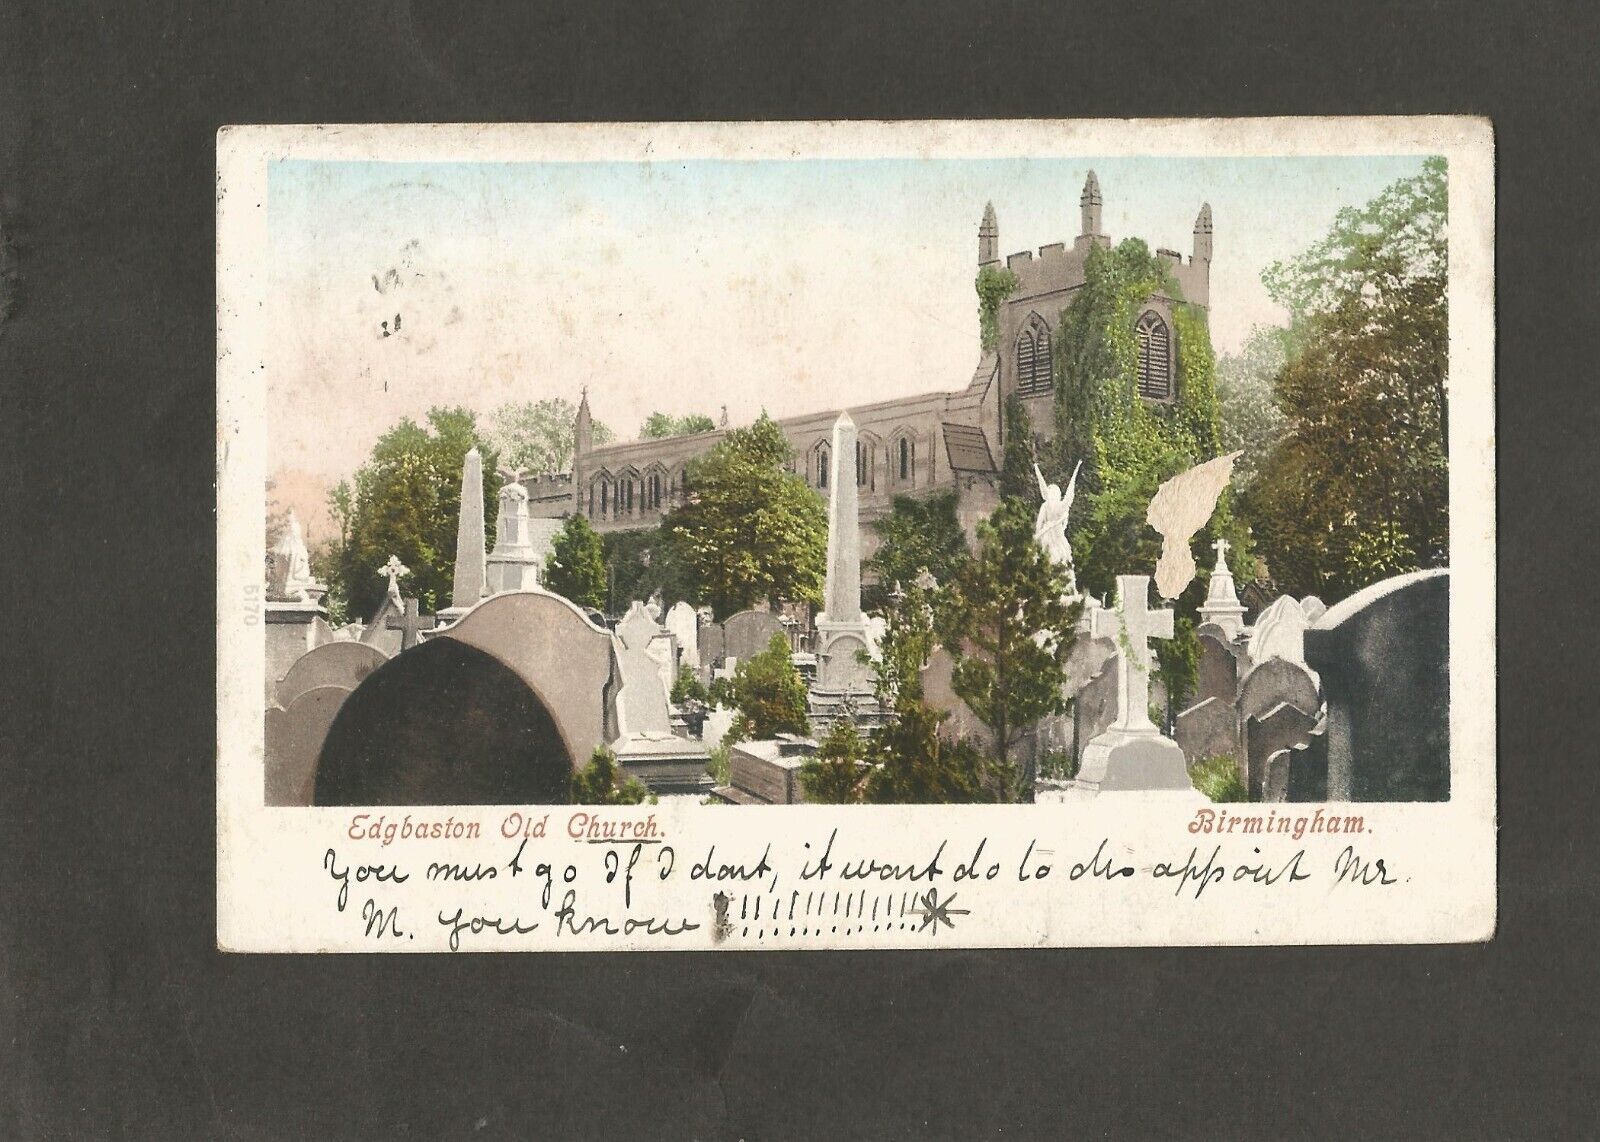 6170
Edgbaston Old Church.
Birmingham.
You must go If I dont, it wont do to dis appoint Mr.
M. you know !!!!!!!!!!!!!